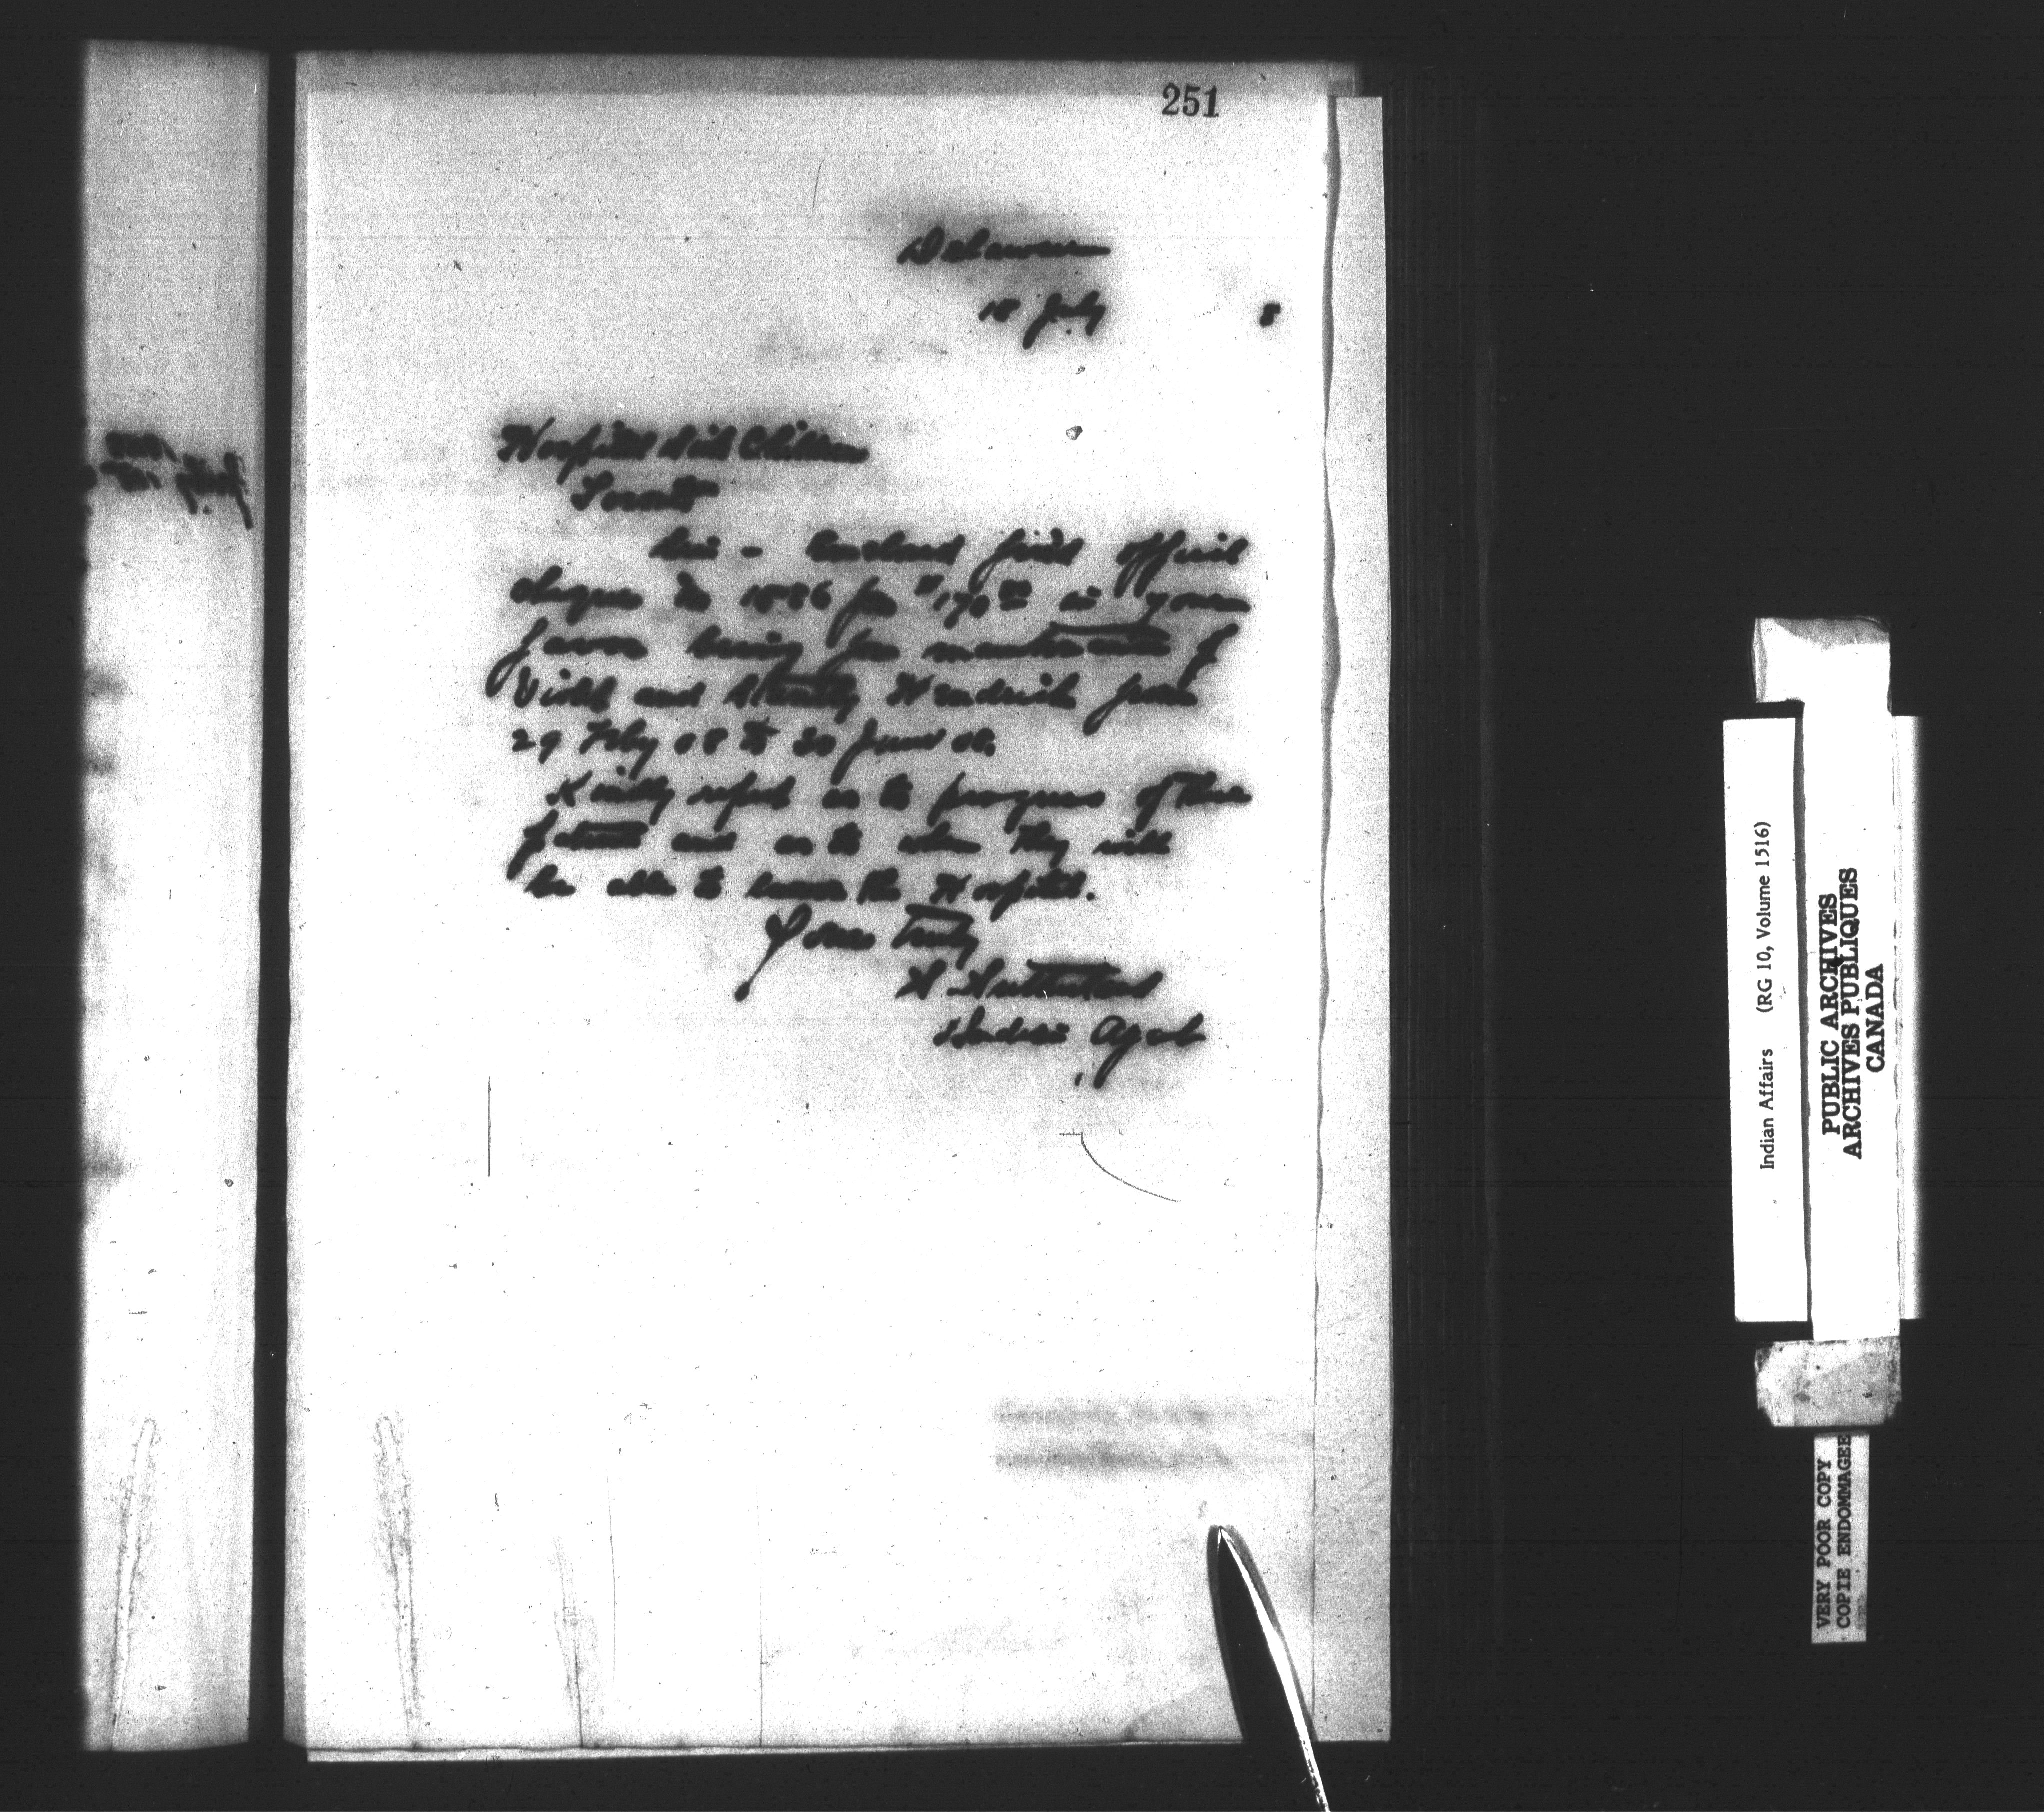 251
Delaware
18 July 8
Hospital Sick Children
Toronto
Sir - Enclosed find official
cheque No 1886 for $170 00 in your
favor being for maintenance of
and Hendrick from
29 Feby 08 to 30 June 08.
Kindly report as to progress of these
patients and as to when they will
be able to leave the Hospital.
Yours Truly
S Sutherland
Indian Agent
Indian Affairs (RG 10, Volume 1516)
PUBLIC ARCHIVES
ARCHIVES PUBLIQUES
CANADA
VERY POOR COPY
COPIE ENDOMMAGEE